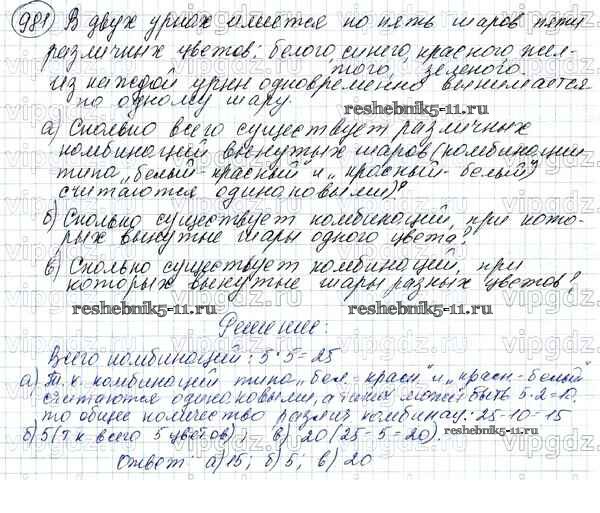 981 В двух урнах имеется по пять шаров пяти
различных цветов: белого, синего, красного жел-
того, зеленого.
Из каждой урны одновременно вынимается
по одному шару.
reshebnik5-11.ru
а) Сколько всего существует различных
комбинаций вынутых шаров (комбинации
типа „белый-красный" и „красный-белый")
считаются одинаковыми)?
б) Сколько существует комбинаций, при кото-
рых вынутые шары одного цвета?
в) Сколько существует комбинаций, при
которых вынутые шары разных цветов?
reshebnik5-11.ru reshebnik5-11.ru
Решение:
Всего комбинаций: 5·5=25
а) Т.к. комбинаций типа „бел.-красн" и „красн-белый"
считаются одинаковыми, а таких может быть 5·2=10,
то общее количество различ комбинац: 25-10=15
б) 5 (т.к всего 5 цветов); в) 20 (25-5=20).
Ответ: а) 15; б) 5; в) 20
reshebnik5-11.ru reshebnik5-11.ru
vipgdz.com